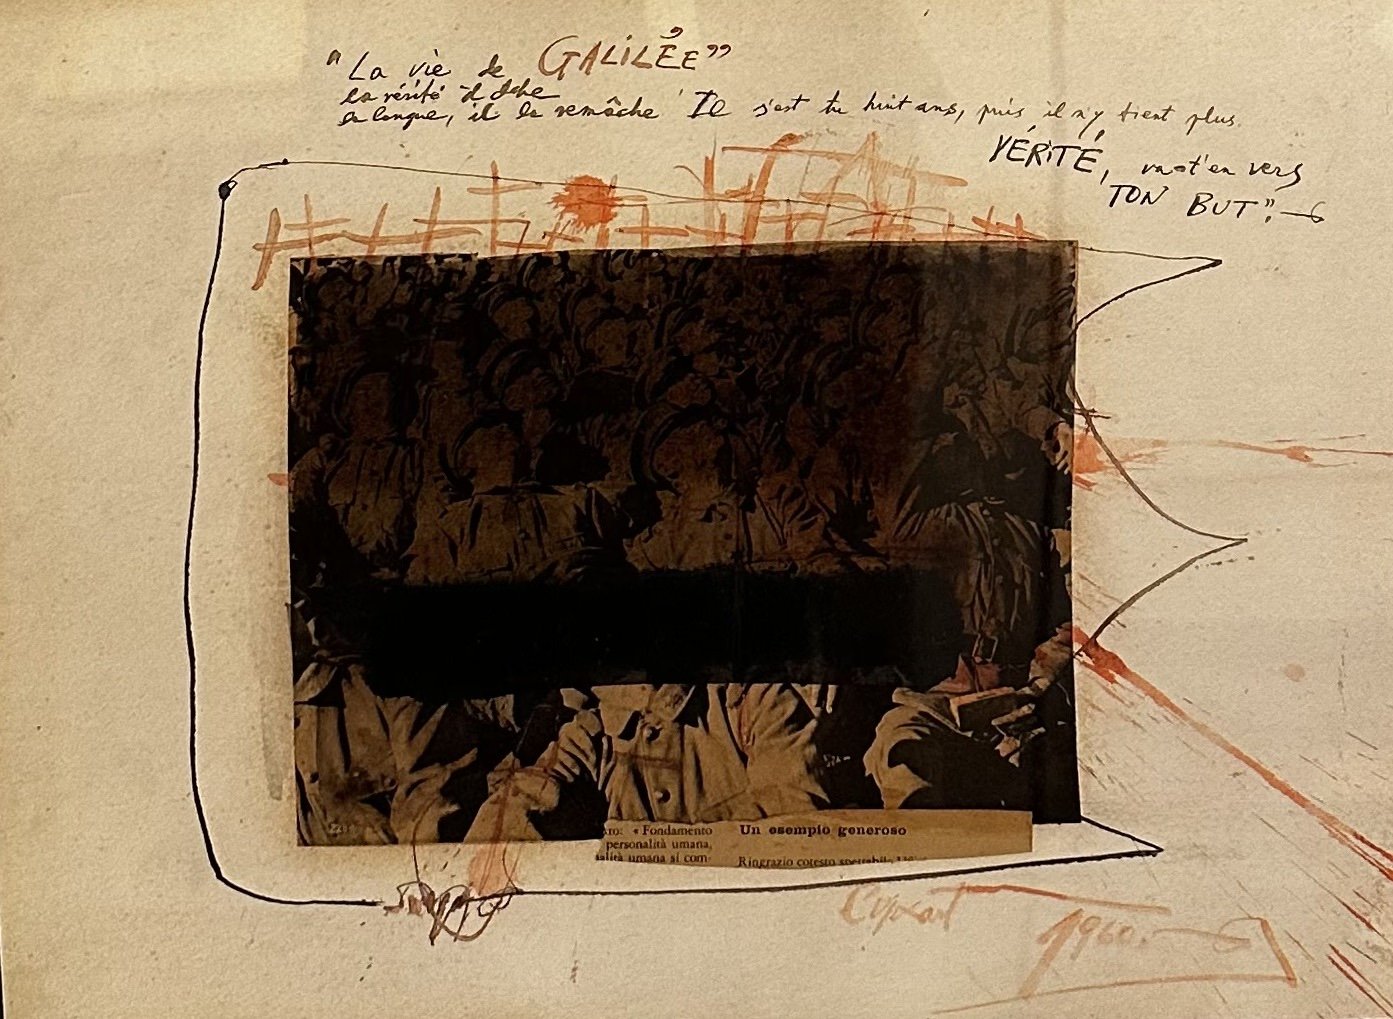 "La vie de GALILÉE"
la vérité
la langue, il la remâche Il s'est tu huit ans, puis il n'y tient plus.
VÉRITÉ, va-t'en vers
TON BUT".
« Fondamento
personalità umana,
umana si com-
Un esempio generoso
Ringrazio cotesto
1960.